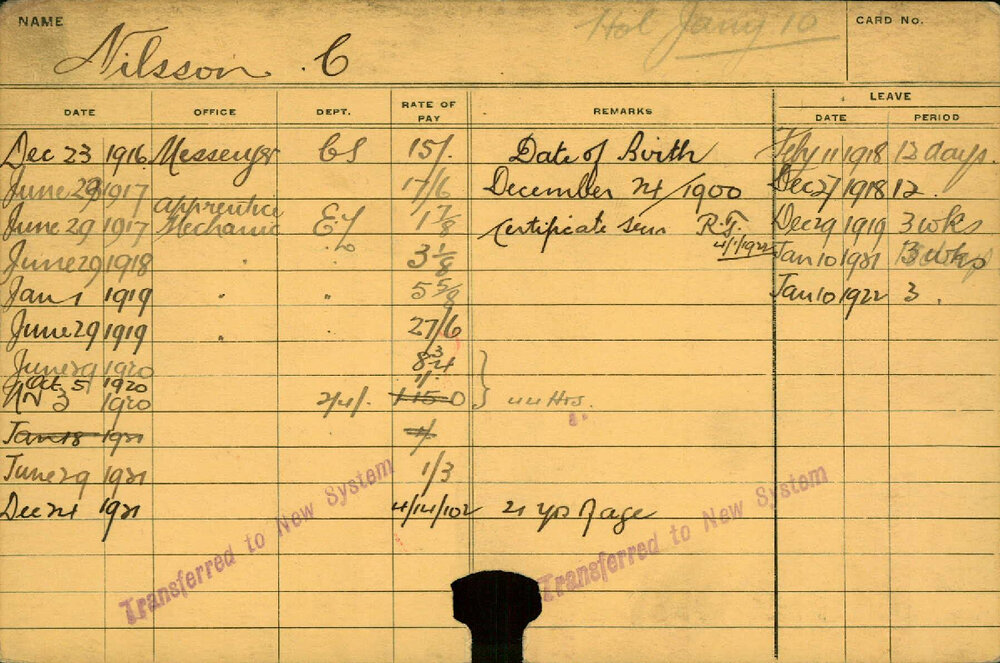 NAME Nilsson . C Hol Jany 10 CARD No.
LEAVE
DATE OFFICE DEPT. RATE OF PAY REMARKS DATE PERIOD
Dec 23 1916 Messenger CS 15/. Date of Birth Feby 11 1918 12 days.
June 29 1917 17/6 December 24/1900 Dec 27/1918 12.
June 29 1917 apprentice Mechanic ES 1 7/8 Certificate seen R.T. 4/1/1922 Dec 29 1919 3 wks
June 29 1918 " Do 3 1/8 Jan 10 1921 3 wks
Jan 1 1919 " " 5 5/8 Jan 10 1922 3 .
June 29 1919 " 27/6
June 29 1920 8 3/4
Oct 5 1920 1/.
Nov 3 1920 2/4/. 1-15-0 44 Hrs.
Jan 18 1921
June 29 1921 1/3
Dec 24 1921 4/14/10 21 yrs of age
Transferred to New System
Transferred to New System